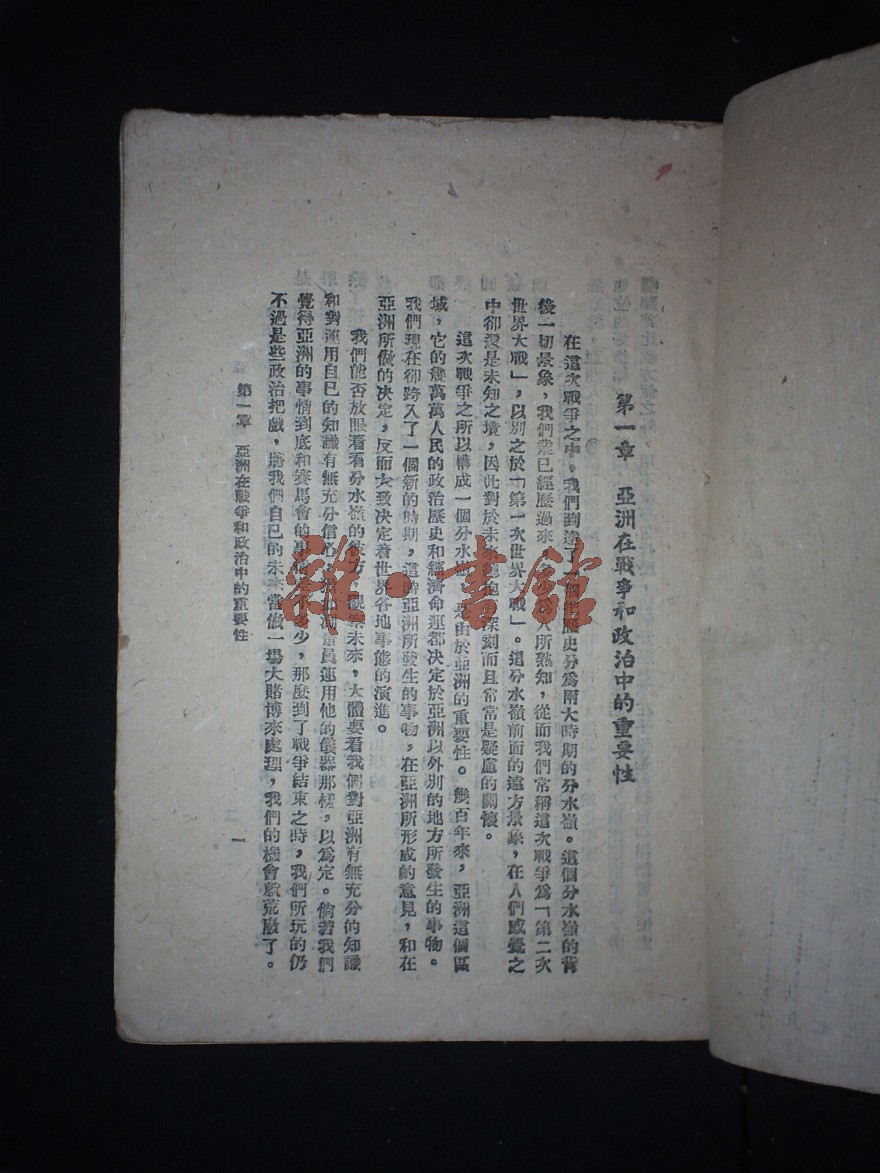 第一章　亞洲在戰爭和政治中的重要性
在這次戰爭之中，我們到達了歷史分爲兩大時期的分水嶺。這個分水嶺的背
後一切景象，我們業已經歷過來，所熟知，從而我們常稱這次戰爭爲「第二次
世界大戰」，以別之於「第一次世界大戰」。這分水嶺前面的遠方景象，在人們感覺之
中卻還是未知之境，因此對於未來深刻而且常常是疑慮的關懷。
這次戰爭之所以構成一個分水嶺，是由於亞洲的重要性。幾百年來，亞洲這個區
域，它的幾萬萬人民的政治歷史和經濟命運都决定於亞洲以外別的地方所發生的事物。
我們現在卻跨入了一個新的時期，這時亞洲所發生的事物，在亞洲所形成的意見，和在
亞洲所做的决定，反而大致决定着世界各地事態的演進。
我們能否放眼看看分水嶺的彼方，觀察未來，大體要看我們對亞洲有無充分的知識
和對運用自己的知識有無充分信心，測量員運用他的儀器那樣，以爲定。倘若我們
覺得亞洲的事情到底和賽馬會的事少，那麽到了戰爭結束之時，我們所玩的仍
不過是些政治把戲，將我們自己的未來當做一場大賭博來處理，我們的機會就荒廢了。
第一章　亞洲在戰爭和政治中的重要性
一
雜·書館